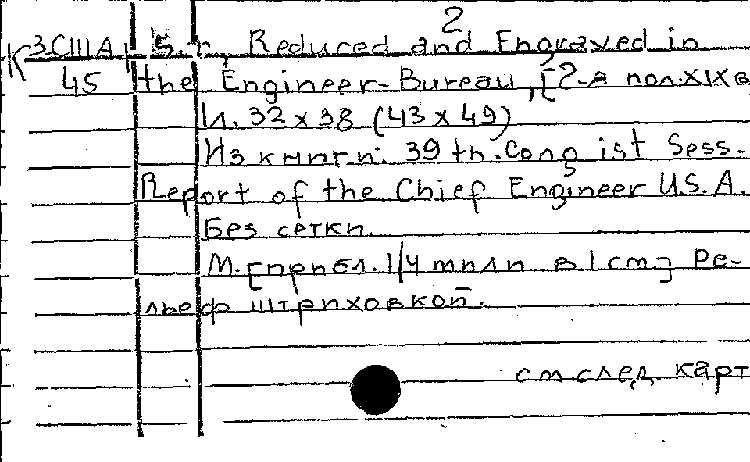 2
К 3.США Б.г., Reduced and Engraved in
45 the Engineer-Bureau, [2-я пол. XIX в
И. 32 x 38 (43 x 49)
Из книги: 39 th. Cong ist Sess.
Report of the Chief Engineer U.S.A.
Без сетки.
М. [прибл. 1/4 мили в 1 см] Ре-
льеф штриховкой.
см след. карт